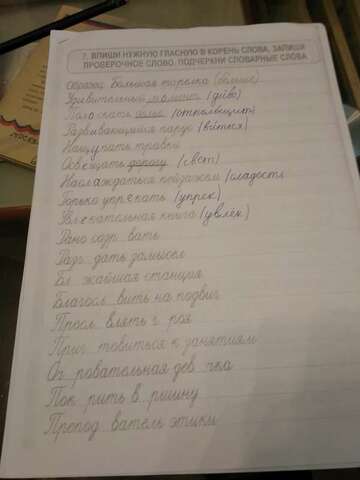 7. ВПИШИ НУЖНУЮ ГЛАСНУЮ В КОРЕНЬ СЛОВА, ЗАПИШИ
ПРОВЕРОЧНОЕ СЛОВО. ПОДЧЕРКНИ СЛОВАРНЫЕ СЛОВА
Образец Большая тарелка (больше)
Удивительный момент (диво)
Полоскать белье
Развивающийся парус (виться)
Нащупать травки
Освещать дорогу (свет)
Наслаждаться пейзажем (сладость)
Горько упрекать (упрек)
Увлекательная книга (увлёк)
Рано созр вать
Разг дать замысел
Бл жайшая станция
Благосл вить на подвиг
Просл влять г роя
Приг товиться к занятиям
Оч ровательная дев чка
Пок рить в ршину
Препод ватель этики